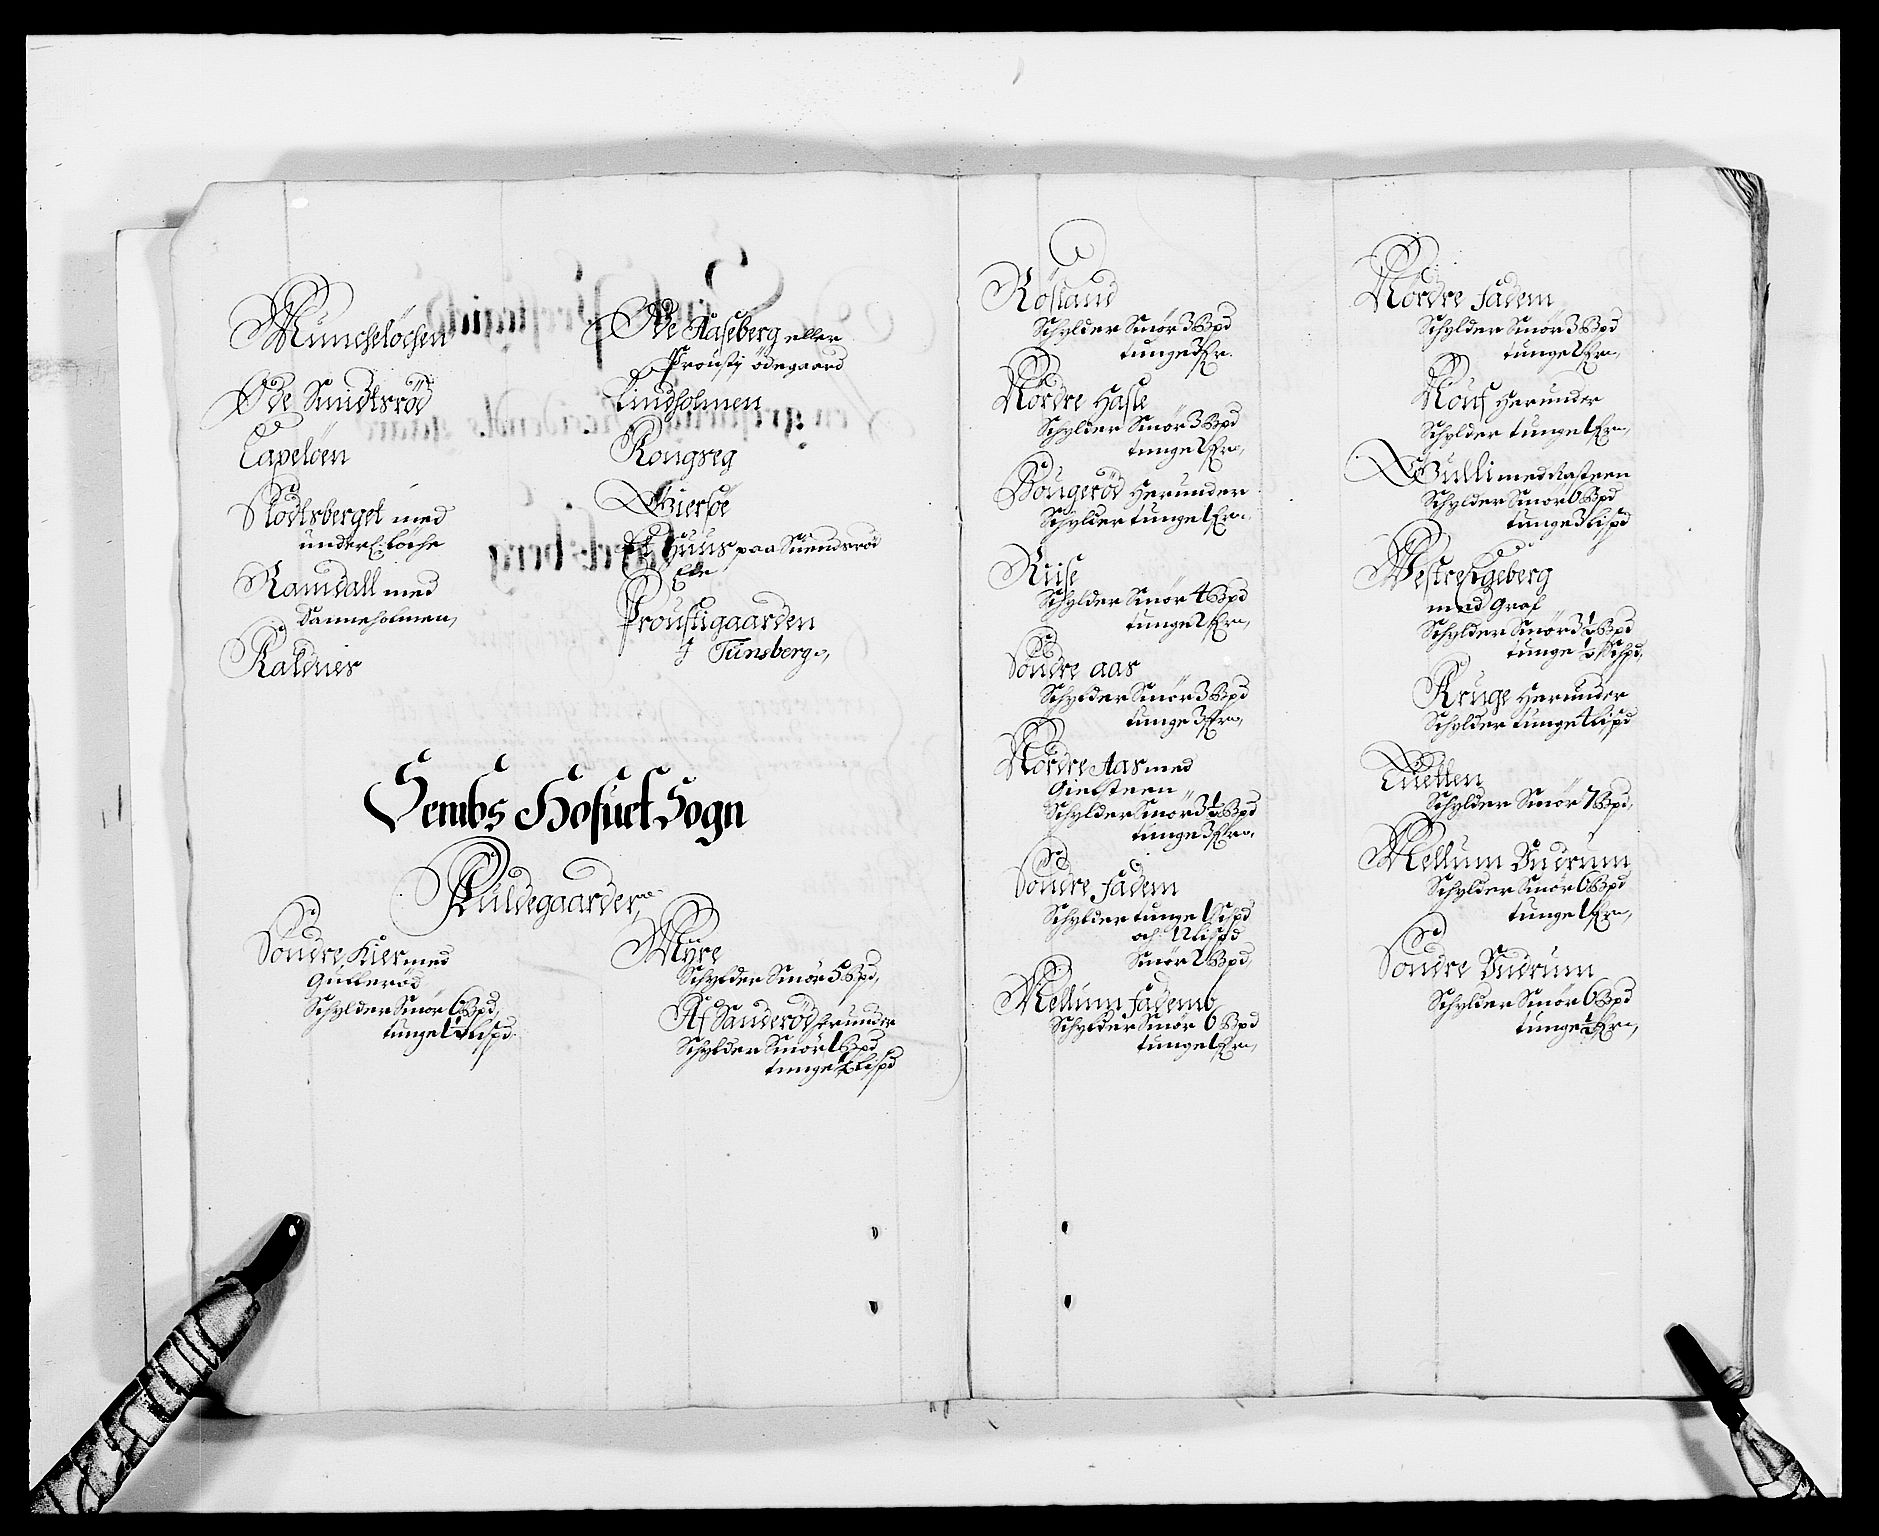 Muncheløchen
Øde Smidtsrød
Capeløen
Slodtsberget med
under E: Løche
Ramdall med
Danneholmen,
Kaldnes
Øde Aaseberg eller
Prousti ødegaard
Lindholmen
Kongseg
Gierpe
Et Huus paa Suendsrød
Eie
Proustigaarden
J Tunsberg,
Sembs Hofuet Sogn
Fuldegaarder,
Søndre Kier med
Gullerød
Schylder Smør 6 Bpd,
tunge 1 Lispd.
Myre
Schylder Smør 5 Bpd,
Af Sanderød herunder
Schylder Smør 1 Bpd
tunge Lispd
Røsland
Schylder Smør 3 Bpd
tunge Fr.
Nordre Hasle
Schylder Smør 3 Bpd
tunge 2 Fr,
Bougerød Herunder
Schylder tunge 1 Fr,
Riise
Schylder Smør 4 Bpd
tunge 2 Fr,
Søndre aas
Schylder Smør 3 Bpd
tunge 3 Fr,
Nordre Aas med
Gielsteen
Schylder Smør 3 ½ Bpd
tunge 3 Fr,
Søndre Fadem
Schylder tunge 1 Schpd
och 2 Lispd
Smør 2 Bpd,
Mellum Fademb
Schylder Smør 6 Bpd
tunge 1 Fr,
Nordre Fadem
Schylder Smør 3 Bpd
tunge 2 Fr,
Herunder
Schylder tunge 1 Fr,
Gulli med Rasteen
Schylder Smør 6 Bpd
tunge 3 Lispd
Westre Egeberg
med Graf
Schylder Smør 3 ½ Bpd
tunge ½ Schpd,
Kruge Herunder
Schylder tunge 4 Lispd
Tuetten
Schylder Smør 7 Bpd,
Mellum Indrum
Schylder Smør 6 Bpd
tunge 1 Fr,
Søndre Indrum
Schylder Smør 6 Bpd
tunge Fr,